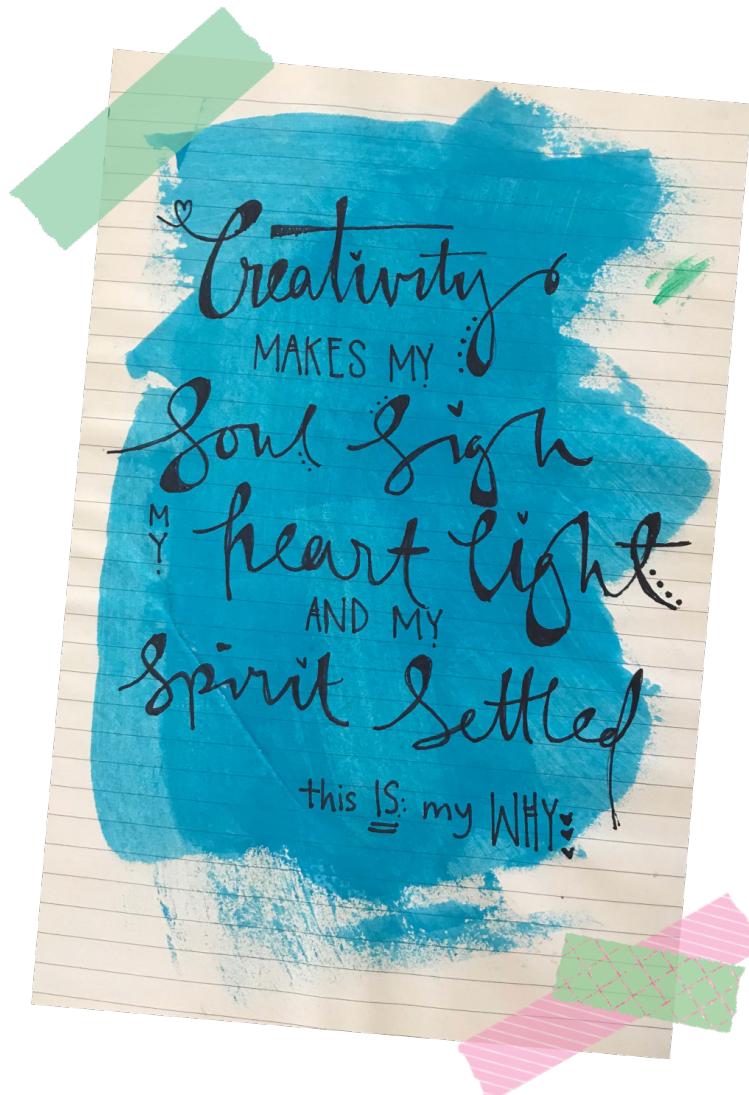 Creativity
MAKES MY
Soul Sigh
MY heart light
AND MY
Spirit Settled
this IS my WHY